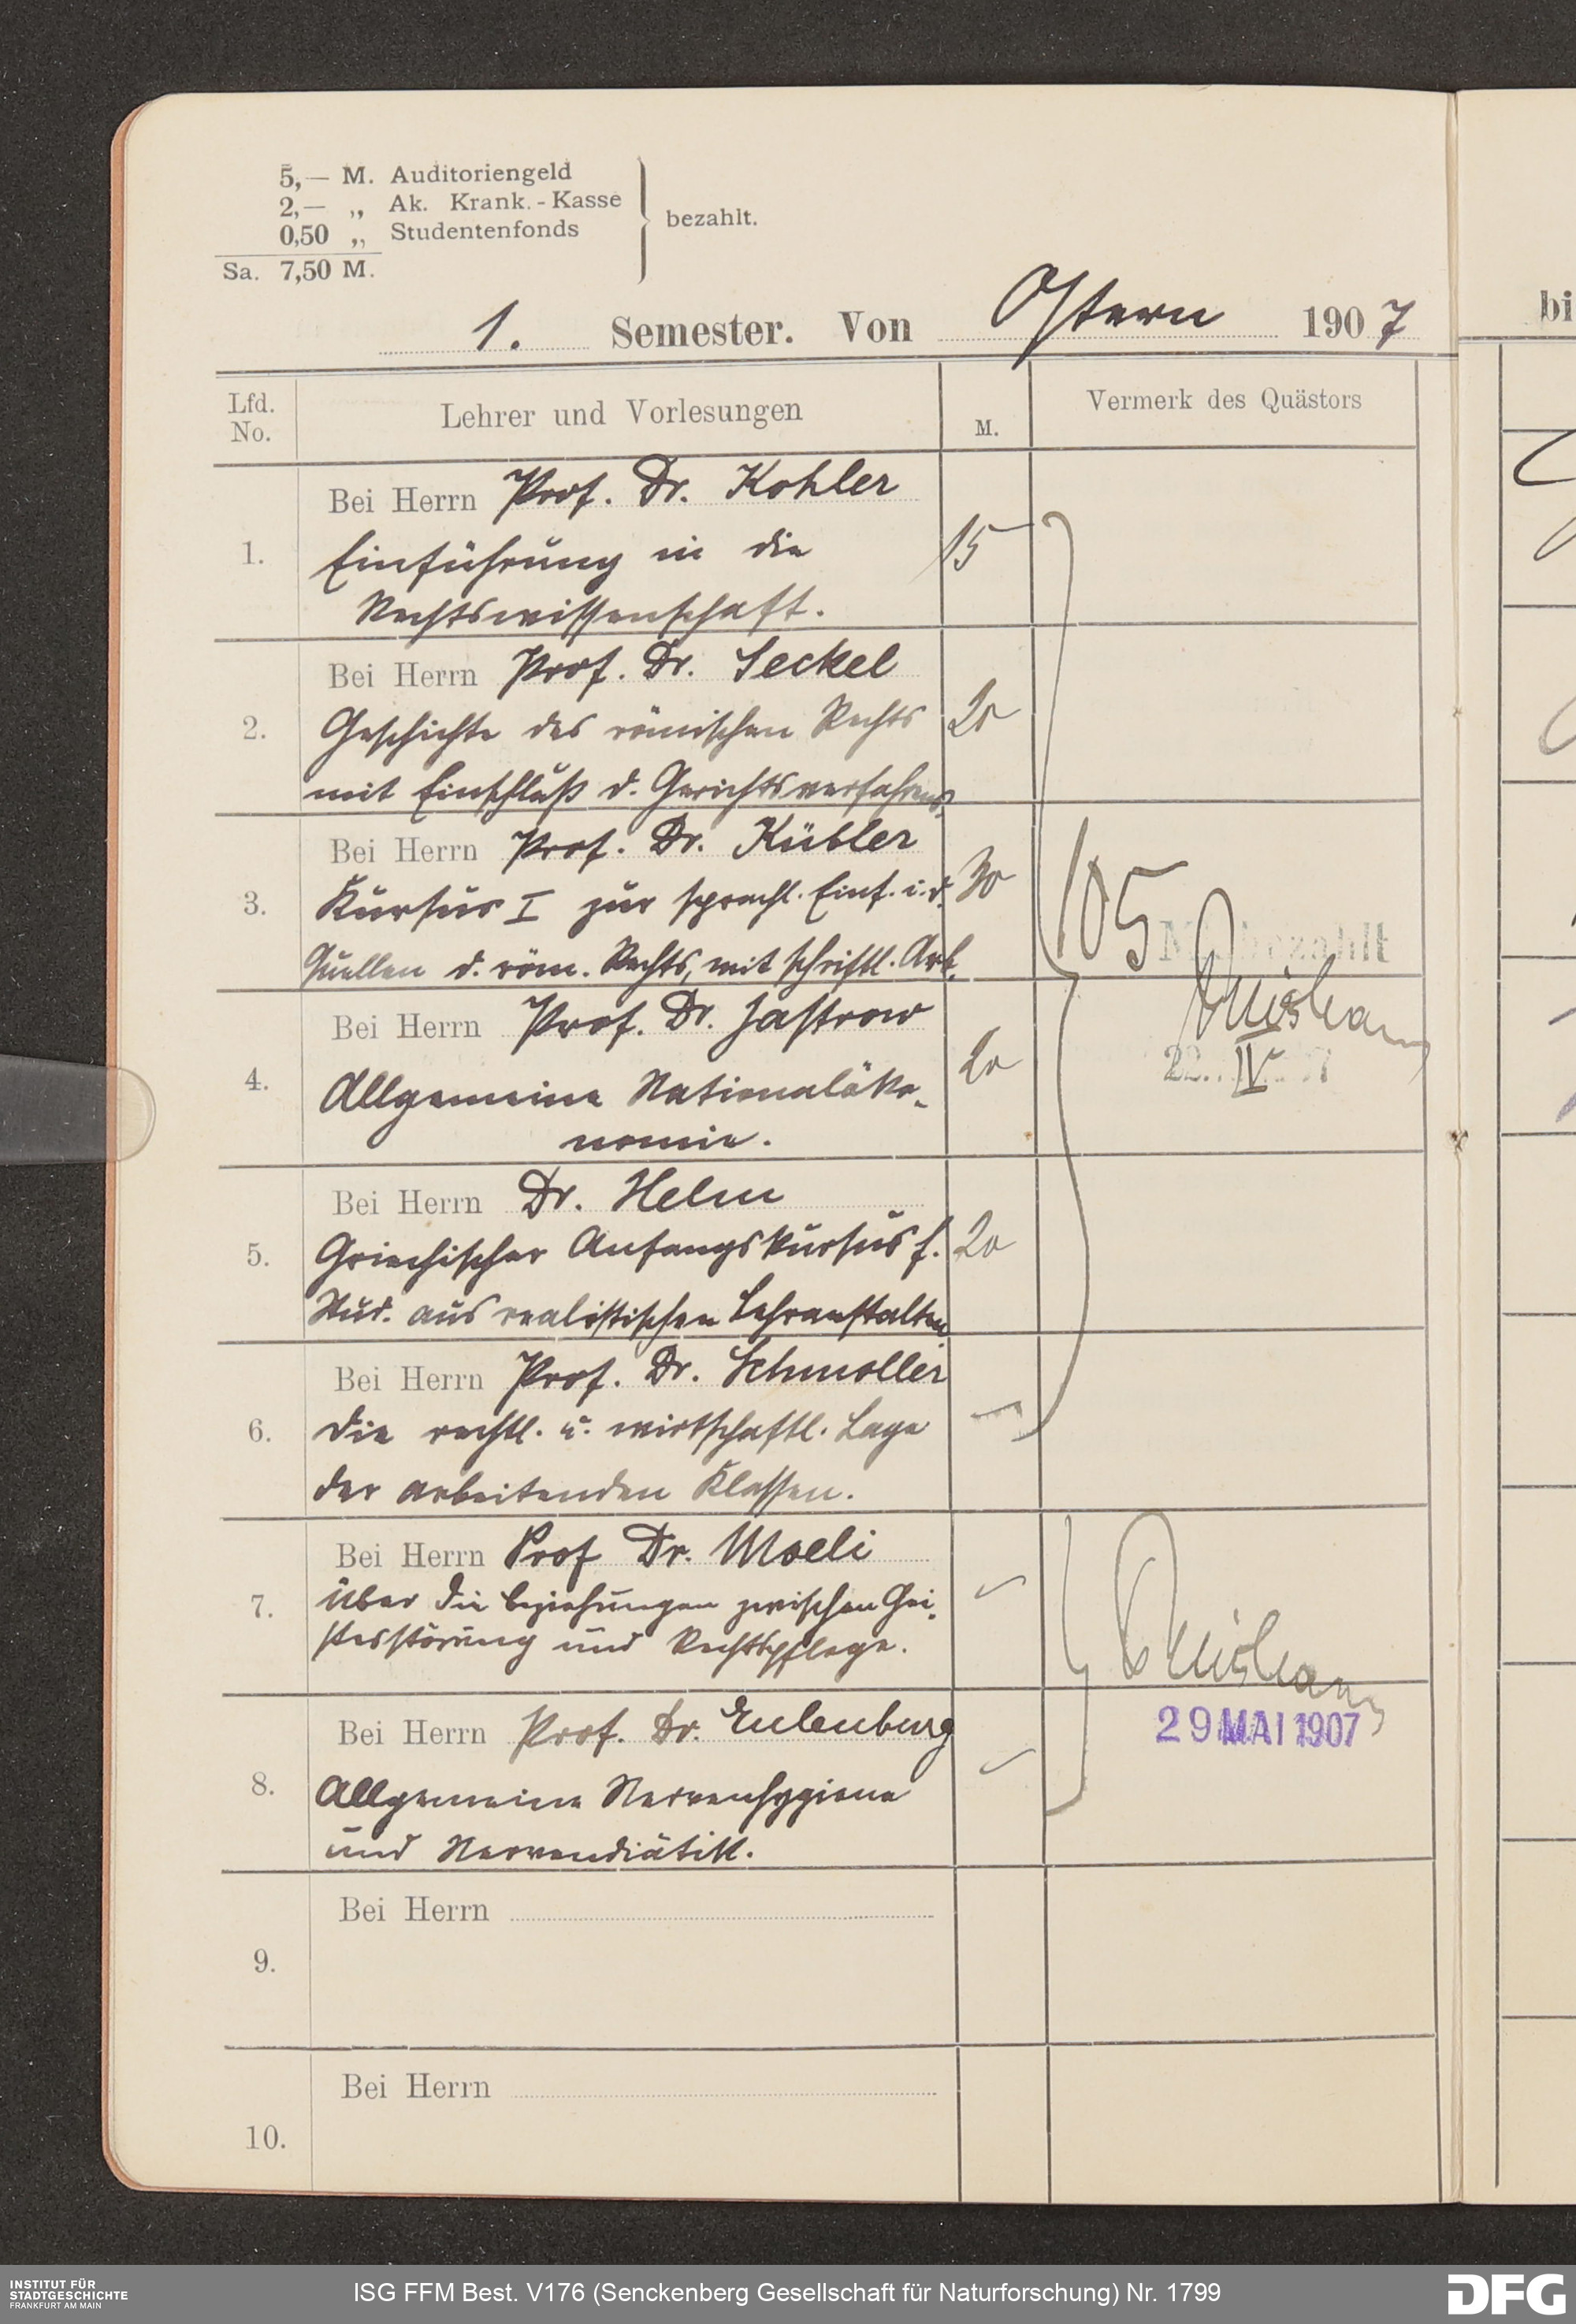 5,— M. Auditoriengeld
2,— „ Ak. Krank.-Kasse
0,50 „ Studentenfonds
bezahlt.
Sa. 7,50 M.
1. Semester. Von Ostern 1907
bi
Lfd. No.
Lehrer und Vorlesungen
M.
Vermerk des Quästors
Bei Herrn Prof. Dr. Kohler
1. Einführung in die 15
Rechtswissenschaft.
Bei Herrn Prof. Dr. Seckel
2. Geschichte des römischen Rechts 20
mit Einschluß d. Gerichtsverfahrens.
Bei Herrn Prof. Dr. Kübler
3. Kursus I zur sprachl. Einf. i. d. 30
Quellen d. röm. Rechts, mit schriftl. Arb.
105 M bezahlt
Bei Herrn Prof. Dr. Jastrow
4. Allgemeine Nationalöko- 20
nomie.
22. IV. 7
Bei Herrn Dr. Helm
5. Griechischer Anfangskursus f. 20
Stud. aus realistischen Lehranstalten
Bei Herrn Prof. Dr. Schmoller
6. Die rechtl. u. wirtschaftl. Lage —
der arbeitenden Klassen.
Bei Herrn Prof Dr. Moeli
7. Über die Beziehungen zwischen Gei-
stesstörung und Rechtspflege.
Bei Herrn Prof. Dr. Eulenburg
29 MAI 1907
8. Allgemeine Nervenhygiene
und Nervendiätik.
Bei Herrn
9.
Bei Herrn
10.
INSTITUT FÜR
STADTGESCHICHTE
FRANKFURT AM MAIN
ISG FFM Best. V176 (Senckenberg Gesellschaft für Naturforschung) Nr. 1799
DFG